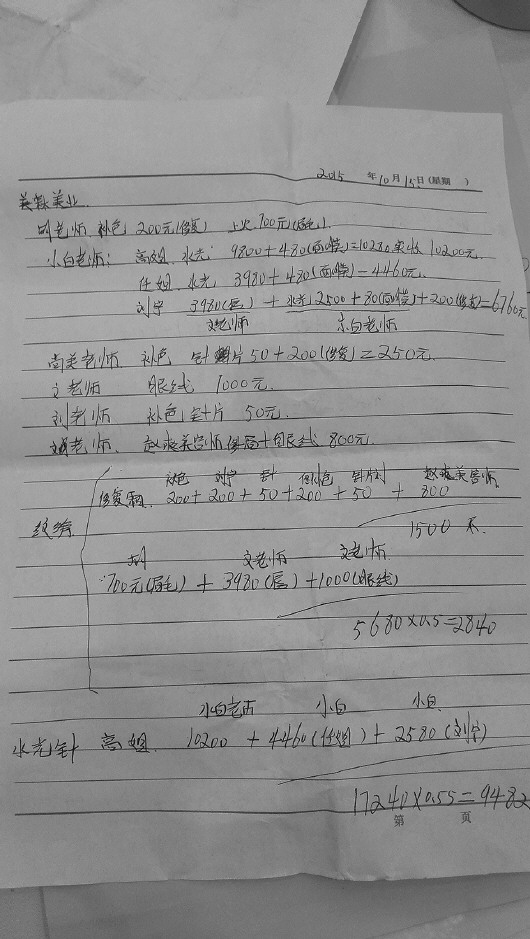 2015 年10月15日(星期 )
美業
老师 补色 200元(修复) 上火 700元(眉毛)
小白老师: 高姐 水光: 9800+480(面膜)=10280实收10200元.
任姐 水光 3980+480(面膜)=4460元.
刘宁 3980(唇) + 水光2500+80(面膜)+200(修复)=6760元
文老师 小白老师
尚美老师 补色 针片50+200(修复)=250元.
文老师 眼线 1000元.
刘老师 补色 针片 50元.
老师. 赵 美容师 眼线 800元.
补色 刘宁 针 补色 针片刘 赵 美容师
修复 200+200+50+200+50+800
纹绣
1500
胡 文老师 文老师
700元(眉毛)+3980(唇)+1000(眼线)
5680×0.5=2840
小白老师 小白 小白
水光针 高姐. 10200+4460(任姐)+2580(刘宁)
17240×0.55=9482
第 页